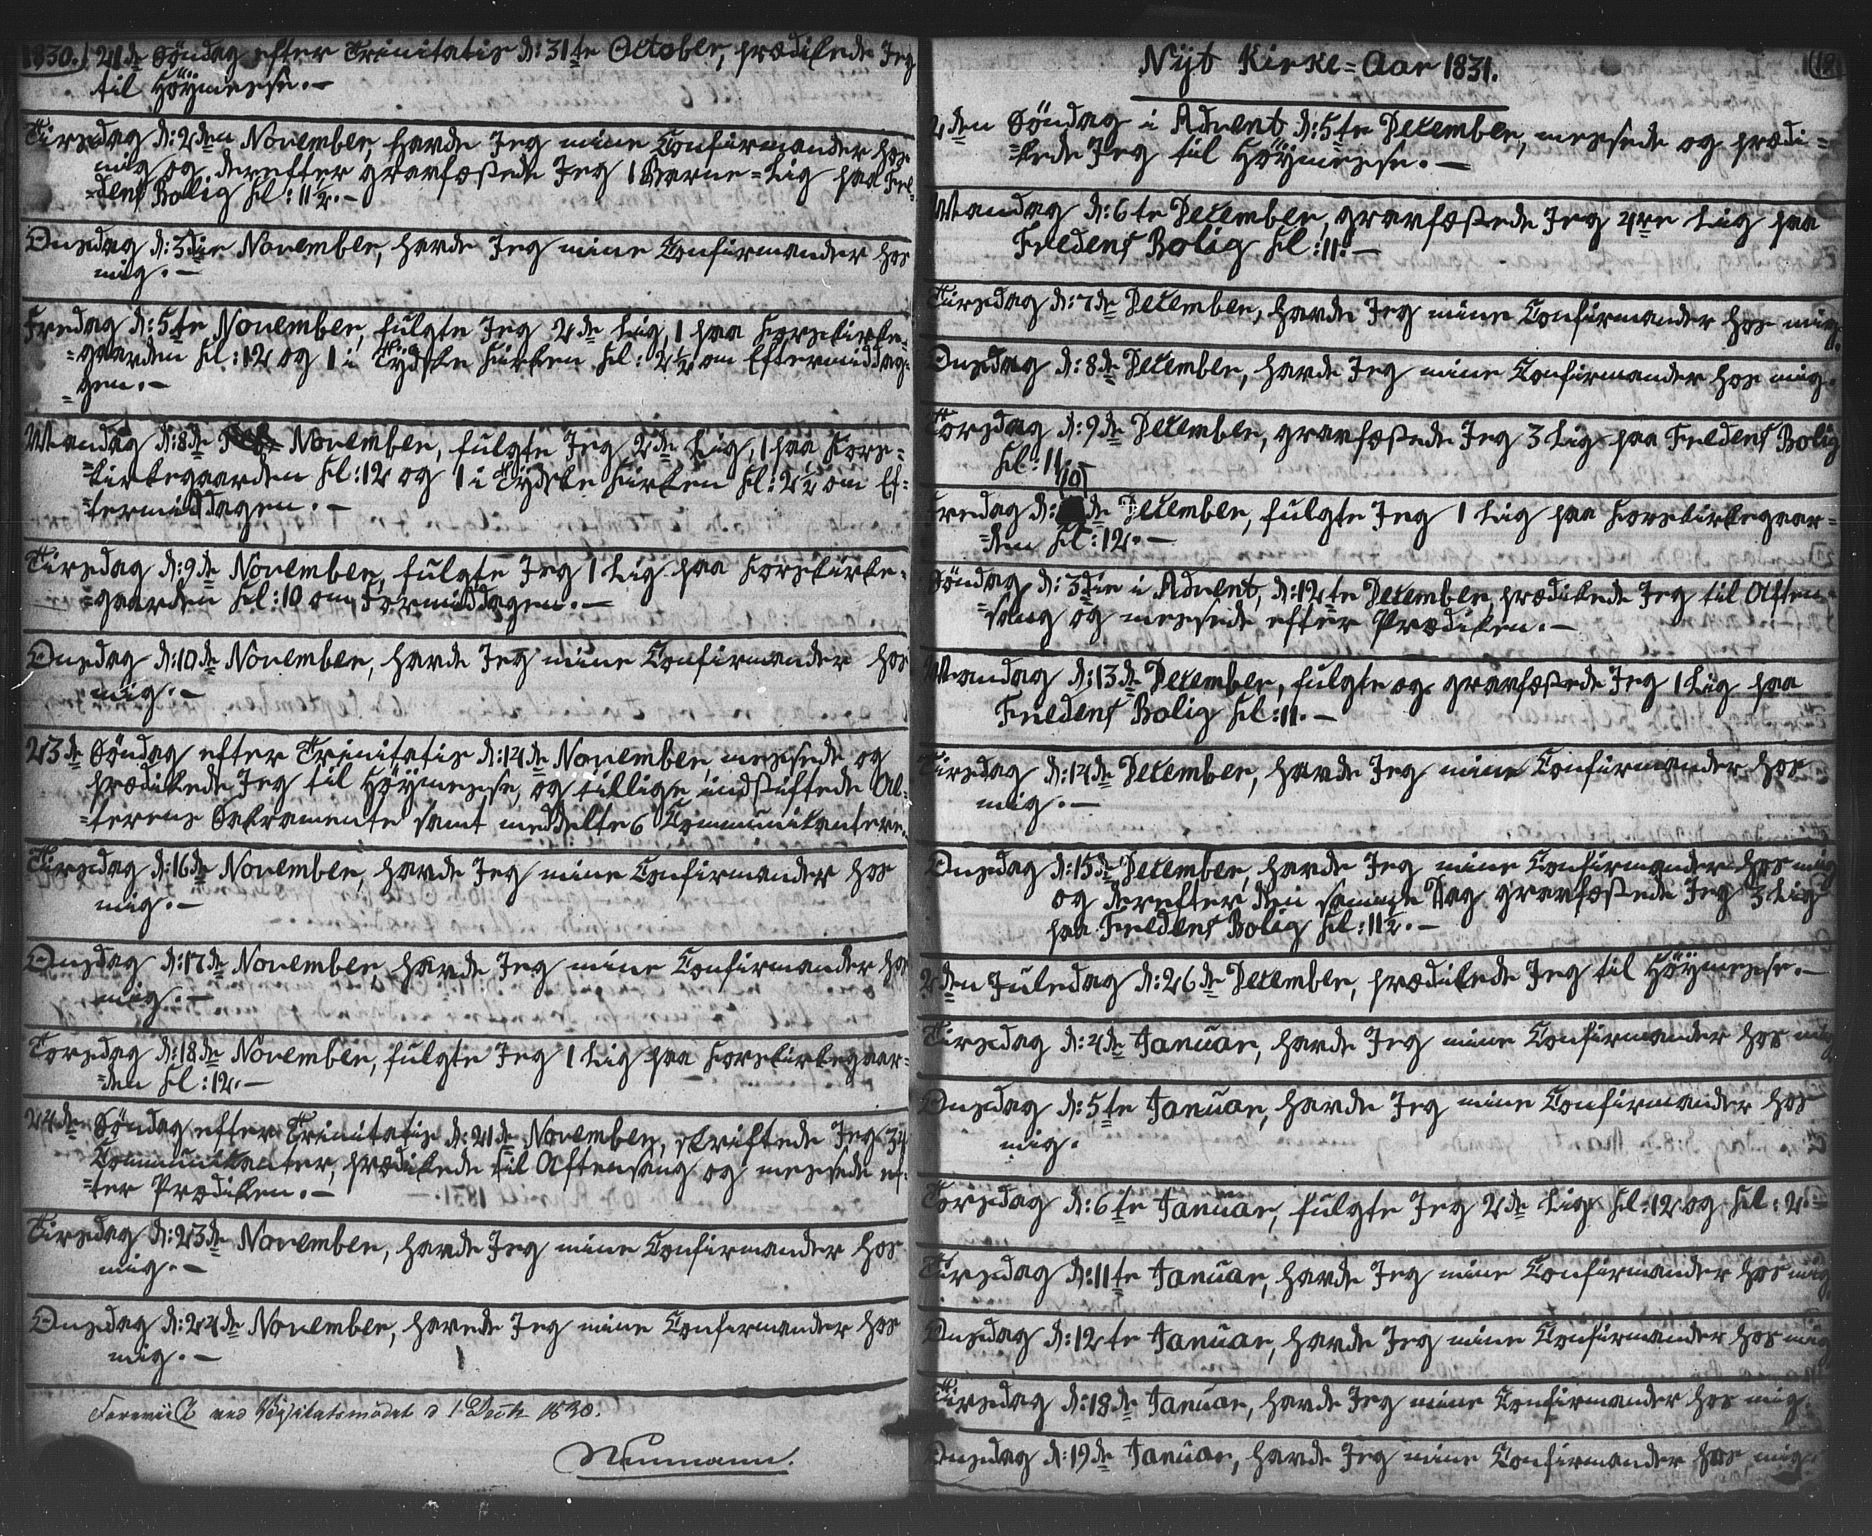 1830. 21de Söndag efter Trinitatis d: 31te October, prædikede Jeg
til Höymesse. —
Tirsdag d: 2den November, havde Jeg mine Confirmander hos
mig og derefter gravfæstede Jeg 1 Barne=Lig paa Fre=
=dens Bolig Kl: 11½. —
Onsdag d: 3die November, havde Jeg mine Confirmander hos
mig. —
Fredag d: 5te November, fulgte Jeg 2de Lig, 1 paa Korskirke=
=gaarden Kl: 12 og 1 i Tÿdske Kirken Kl: 2½ om Eftermidda=
=gen. —
Mandag d: 8de November, fulgte Jeg 2de Lig, 1 paa Kors=
=kirkegaarden Kl: 12 og 1 i Tÿdske Kirken Kl: 2½ om Ef=
=termiddagen. —
Tirsdag d: 9de November, fulgte Jeg 1 Lig paa Korskirke=
=gaarden Kl: 10 om Formiddagen. —
Onsdag d: 10de November, havde Jeg mine Confirmander hos
mig. —
23de Söndag efter Trinitatis d: 14de November, messede og
prædikede Jeg til Höÿmesse, og tillige indstiftede Al=
=terens Sakramente samt meddelte 6 Communikantere.
Tirsdag d: 16de November, havde Jeg mine Confirmander hos
mig. —
Onsdag d: 17de November, havde Jeg mine Confirmander hos
mig. —
Torsdag d: 18de November, fulgte Jeg 1 Lig paa Korskirkegaar=
=den Kl: 12. —
24de Söndag efter Trinitatis d: 21de November, skriftede Jeg 34
Communikanter, prædikede til Aftensang og messede ef=
=ter Prædiken. —
Tirsdag d: 23de November, havde Jeg mine Confirmander hos
mig. —
Onsdag d: 24de November, havde Jeg mine Confirmander hos
mig. —
Foreviist ved Visitatsmödet d 1 Decbr 1830.
Neumann.
Nÿt Kirke=Aar 1831.
2den Söndag i Advent d: 5te December, messede og prædi=
=kede Jeg til Höÿmesse. —
Mandag d: 6te December, gravfæstede Jeg 4re Lig paa
Fredens Bolig Kl: 11. —
Tirsdag d: 7de December, havde Jeg mine Confirmander hos mig.
Onsdag d: 8de December, havde Jeg mine Confirmander hos mig.
Torsdag d: 9de December, gravfæstede Jeg 3 Lig paa Fredens Bolig
Kl: 11.
Fredag d: 10de December, fulgte Jeg 1 Lig paa Korskirkegaar=
=den Kl: 12. —
Söndag d: 3die i Advent, d: 12te December, prædikede Jeg til Aften=
=sang og messede efter Prædiken. —
Mandag d: 13de December, fulgte og gravfæstede Jeg 1 Lig paa
Fredens Bolig Kl: 11. —
Tirsdag d: 14de December, havde Jeg mine Confirmander hos
mig. —
Onsdag d: 15de December, havde Jeg mine Confirmander hos mig
og derefter den samme Dag gravfæstede Jeg 3 Lig
paa Fredens Bolig Kl: 11½. —
2den Juledag d: 26de December, prædikede Jeg til Höÿmesse. —
Tirsdag d: 4de Januar, havde Jeg mine Confirmander hos mig
Onsdag d: 5te Januar, havde Jeg mine Confirmander hos
mig.
Torsdag d: 6te Januar, fulgte Jeg 2de Lig Kl: 12 og Kl: 2.
Tirsdag d: 11te Januar, havde Jeg mine Confirmander hos mig
Onsdag d: 12te Januar, havde Jeg mine Confirmander hos mig
Tirsdag d: 18de Januar, havde Jeg mine Confirmander hos mig.
Onsdag d: 19de Januar, havde Jeg mine Confirmander hos mig.